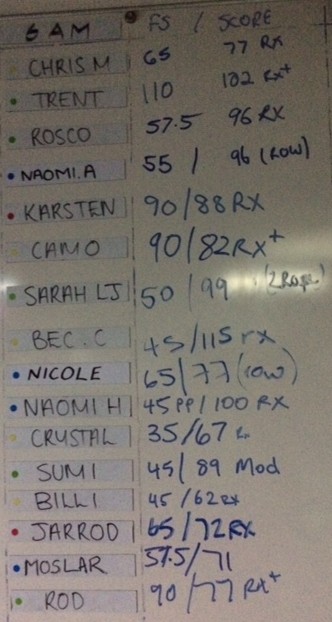 6 AM FS / SCORE
CHRIS M 65 77 RX
TRENT 110 102 RX+
ROSCO 57.5 96 RX
NAOMI.A 55 / 96 (ROW)
KARSTEN 90/88 RX
CAMO 90/82RX+
SARAH LJ 50 / 99 (2Rope)
BEC.C 45/115 rx
NICOLE 65/77 (row)
NAOMI H 45PP/100 RX
CRYSTAL 35/67
SUMI 45/ 89 Mod
BILLI 45/62RX
JARROD 65/72RX
MOSLAR 57.5/71
ROD 90/77 RX+